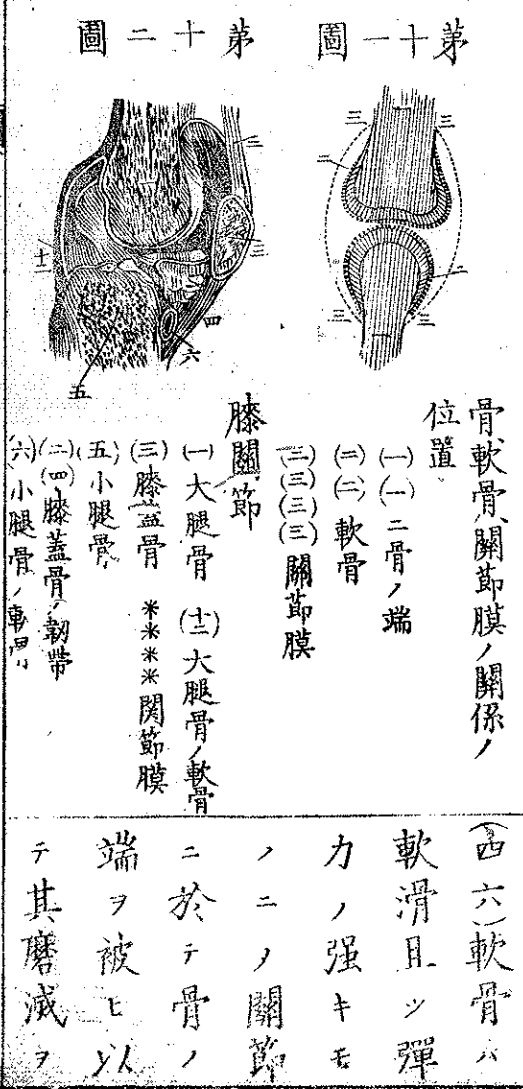 第十一圖
三
三
二
一
二
一
三
三
第十二圖
一
二
三
四
六
五
十二
骨、軟骨、關節膜ノ關係ノ
位置
(一)(一)二骨ノ端
(二)(二)軟骨
(三)(三)(三)(三)關節膜
膝關節
(一)大腿骨 (十二)大腿骨ノ軟骨
(三)膝蓋骨 ****関節膜
(五)小腿骨
(二)(四)膝蓋骨ノ韌帶
(六)小腿骨ノ軟骨
(四六)軟骨ハ
軟滑且ツ彈
力ノ强キモ
ノニノ關節
ニ於テ骨ノ
端ヲ被ヒ以
テ其磨滅ヲ